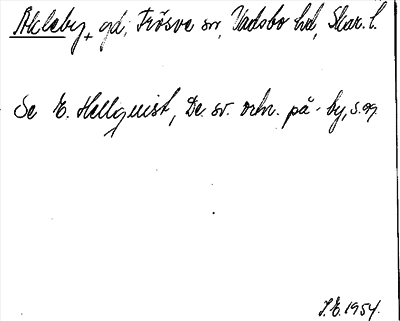 Åkleby, gd, Frösve sn, Vadsbo hd, Skar. l.
Se E. Hellquist, De sv. ortn. på -by, s. 99.
J.E. 1954.